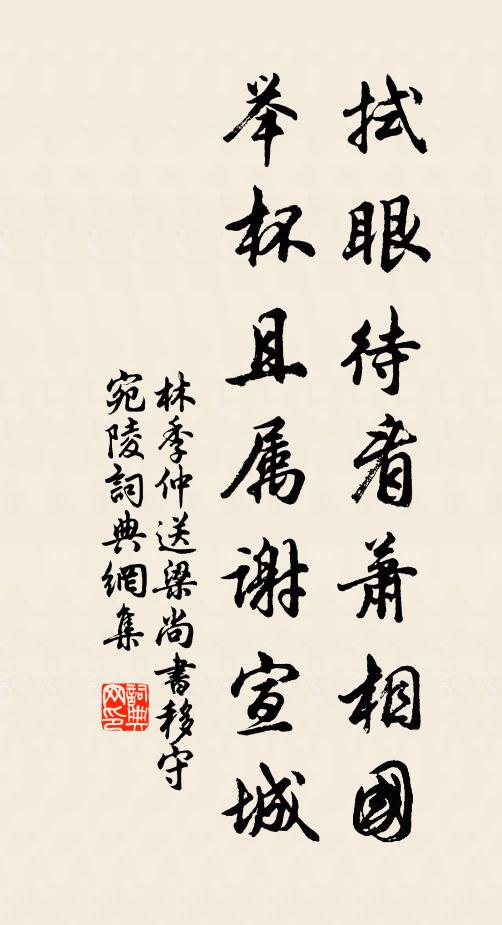 拭眼待看萧相國
举杯且属谢宣城
林季仲送梁尚書移守
宛陵詞典網集
詞典
网印